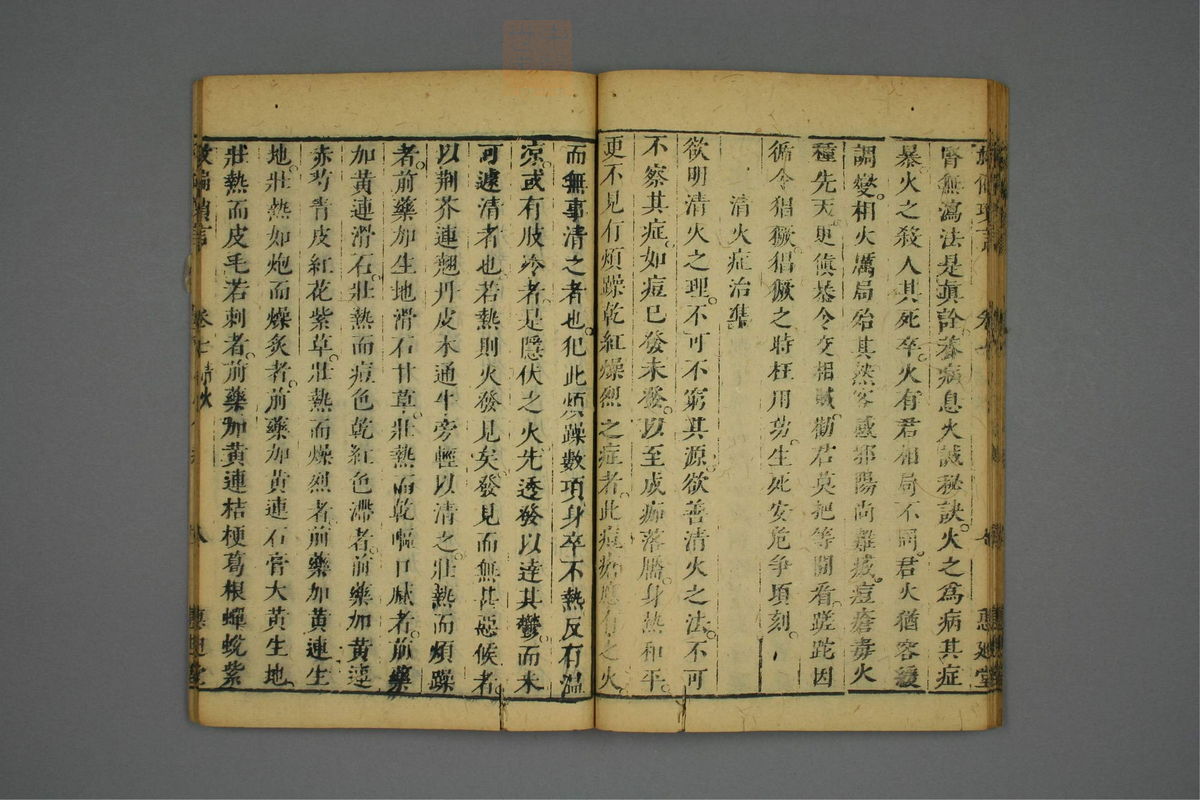 腎無瀉法是眞詮養病息火誠秘訣火之爲病其症
暴火之殺人其死卒火有君相局不同君火猶容緩
調燮相火厲局殆其然客感邪陽尚難痠痘瘡毒火
種先天更愼恭令交相賊勸君莫把等閒看蹉跎因
循令猖獗猖獗之時枉用功生死安危争頃刻
清火症治集
欲明清火之理不可不窮其源欲善清火之法不可
不察其症如痘已發未發以至成痂落靨身熱和平
更不見有煩躁乾紅燥烈之症者此痘瘡應有之火
而無事清之者也犯此煩躁數項身卒不熱反有溫
凉或有肢冷者是隱伏之火先透發以達其鬱而未
可遽清者也若熱則火發見矣發見而無甚惡候者
以荆芥連翹丹皮木通牛旁輕以清之壯熱而煩躁
者前藥加生地滑石甘草壯熱而乾嘔口瘷者前藥
加黃連滑石壯熱而痘色乾紅色滯者前藥加黃連
赤芍青皮紅花紫草壯熱而燥烈者前藥加黃連生
地壯熱如炮而燥炙者前藥加黃連石膏大黃生地
壯熱而皮毛若刺者前藥加黃連桔梗葛根蟬蛻紫
救偏瑣言
卷七
清火
八
惠迪堂